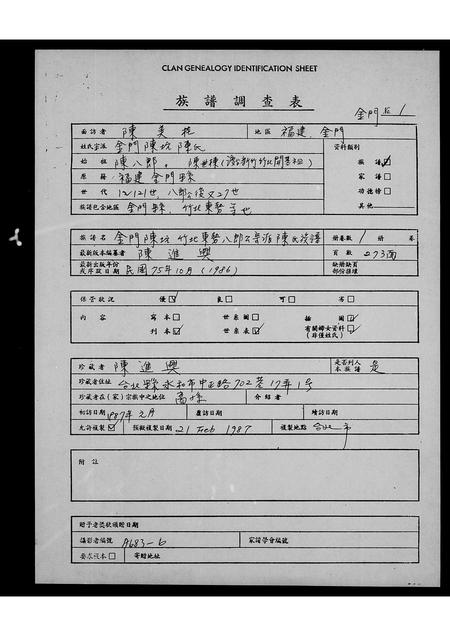 CLAN GENEALOGY IDENTIFICATION SHEET
族譜調查表
金門 1
面訪者 陳美桂 地區 福建 金門
姓氏宗派 金門陳坑陳氏 資料類別
始祖 陳八郎
族譜 ☑
原籍 福建金門縣 家譜 □
世代 功德榜 □
族譜包含地區 金門縣 竹北東勢等地 其他
族譜名 金門陳坑竹北東勢八郎公 派陳氏族譜 冊卷數 1 冊 卷
最新版本編纂者 陳進興 頁數 273面
最新出版年份或序跋日期 民國75年10月(1986) 缺冊缺頁部份損壞
保管狀況 優☑ 良□ 可□ 劣□
內容 寫本□ 世系圖□ 插圖☑
刊本☑ 世系表☑ 有關婦女資料(非僅姓氏)
珍藏者 陳進興 是否列入本族譜 是
珍藏者住址 台北縣永和市中正路702巷17弄1号
珍藏者在(家)宗族中之地位 介紹者
初訪日期 1987年元月 覆訪日期 續訪日期
允許複製☑ 預擬複製日期 21 Feb 1987 複製地點 台北市
附註
贈予者獎狀頒贈日期
攝影者編號 A683-6 家譜學會編號
要求複本□ 寄贈地址